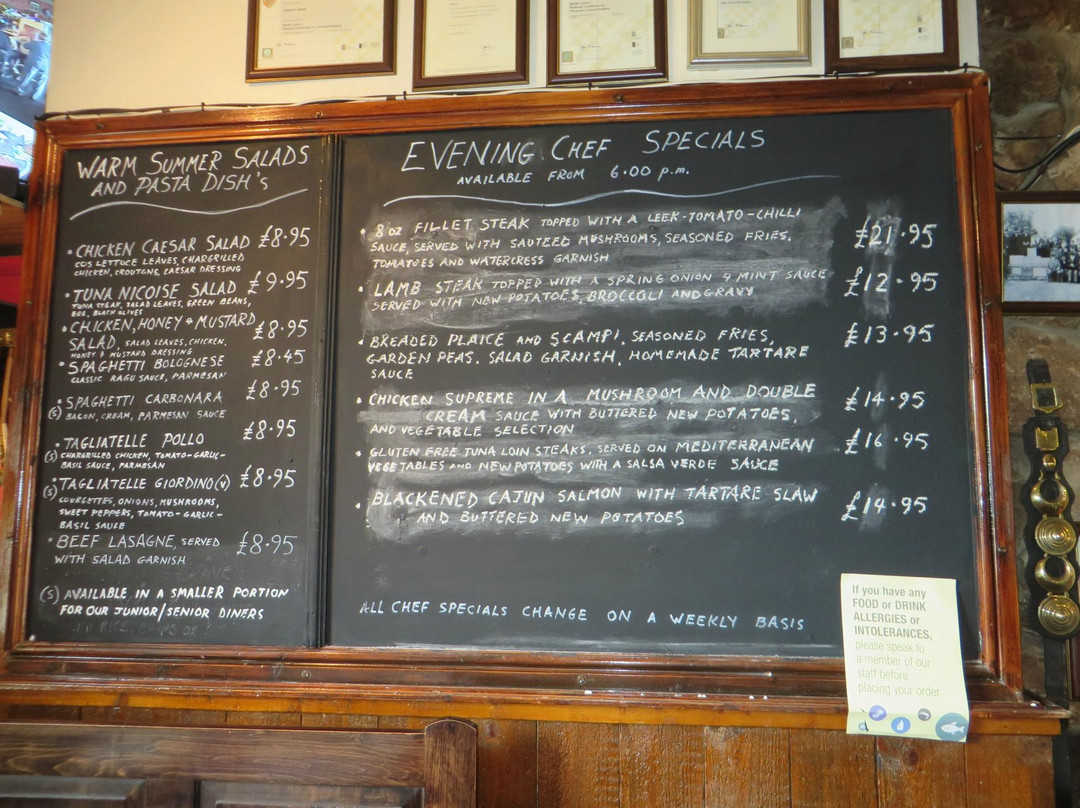 WARM SUMMER SALADS
AND PASTA DISH's
• CHICKEN CAESAR SALAD £8.95
COS LETTUCE LEAVES, CHARGRILLED
CHICKEN, CROUTONS, CAESAR DRESSING
• TUNA NICOISE SALAD £9.95
TUNA STEAK, SALAD LEAVES, GREEN BEANS,
EGG, BLACK OLIVES
• CHICKEN, HONEY & MUSTARD £8.95
SALAD, SALAD LEAVES, CHICKEN,
HONEY & MUSTARD DRESSING
• SPAGHETTI BOLOGNESE £8.45
CLASSIC RAGU SAUCE, PARMESAN
• SPAGHETTI CARBONARA £8.95
(S) BACON, CREAM, PARMESAN SAUCE
• TAGLIATELLE POLLO £8.95
(S) CHARGRILLED CHICKEN, TOMATO-GARLIC-
BASIL SAUCE, PARMESAN
• TAGLIATELLE GIORDINO (V) £8.95
(S) COURGETTES, ONIONS, MUSHROOMS,
SWEET PEPPERS, TOMATO-GARLIC-
BASIL SAUCE
• BEEF LASAGNE, SERVED £8.95
WITH SALAD GARNISH
(S) AVAILABLE IN A SMALLER PORTION
FOR OUR JUNIOR/SENIOR DINERS
EVENING CHEF SPECIALS
AVAILABLE FROM 6.00 p.m.
• 8oz FILLET STEAK TOPPED WITH A LEEK-TOMATO-CHILLI £21.95
SAUCE, SERVED WITH SAUTEED MUSHROOMS, SEASONED FRIES,
TOMATOES AND WATERCRESS GARNISH
• LAMB STEAK TOPPED WITH A SPRING ONION & MINT SAUCE £12.95
SERVED WITH NEW POTATOES, BROCCOLI AND GRAVY
• BREADED PLAICE AND SCAMPI, SEASONED FRIES, £13.95
GARDEN PEAS, SALAD GARNISH, HOMEMADE TARTARE
SAUCE
• CHICKEN SUPREME IN A MUSHROOM AND DOUBLE £14.95
CREAM SAUCE WITH BUTTERED NEW POTATOES,
AND VEGETABLE SELECTION
• GLUTEN FREE TUNA LOIN STEAKS, SERVED ON MEDITERRANEAN £16.95
VEGETABLES AND NEW POTATOES WITH A SALSA VERDE SAUCE
• BLACKENED CAJUN SALMON WITH TARTARE SLAW £14.95
AND BUTTERED NEW POTATOES
ALL CHEF SPECIALS CHANGE ON A WEEKLY BASIS
If you have any
FOOD or DRINK
ALLERGIES or
INTOLERANCES,
please speak to
a member of our
staff before
placing your order